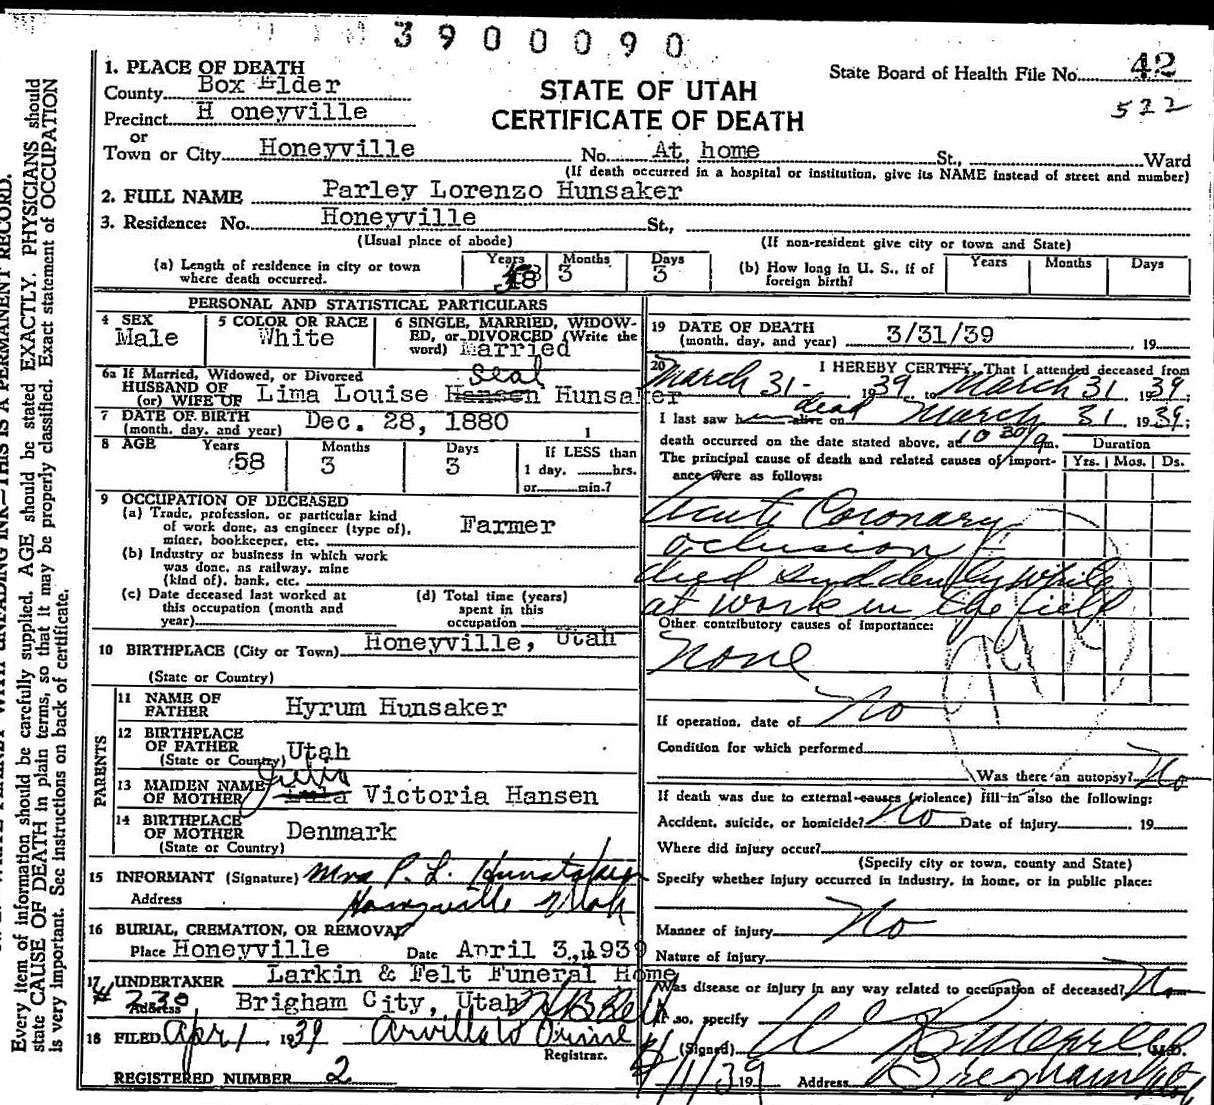 3900090
State Board of Health File No. 42
522
STATE OF UTAH
CERTIFICATE OF DEATH
1. PLACE OF DEATH
County Box Elder
Precinct H oneyville
or
Town or City Honeyville No. At home St., Ward
(If death occurred in a hospital or institution, give its NAME instead of street and number)
2. FULL NAME Parley Lorenzo Hunsaker
3. Residence: No. Honeyville St.,
(Usual place of abode) (If non-resident give city or town and State)
(a) Length of residence in city or town where death occurred. Years 58 Months 3 Days 3
(b) How long in U. S., if of foreign birth? Years Months Days
PERSONAL AND STATISTICAL PARTICULARS
4 SEX Male
5 COLOR OR RACE White
6 SINGLE, MARRIED, WIDOWED, or DIVORCED (Write the word) Married
6a If Married, Widowed, or Divorced
seal
HUSBAND OF
(or) WIFE OF Lima Louise Hansen Hunsaker
7 DATE OF BIRTH
(month, day, and year) Dec. 28, 1880
8 AGE Years 58 Months 3 Days 3 If LESS than 1 day, hrs. or min.?
9 OCCUPATION OF DECEASED
(a) Trade, profession, or particular kind
of work done, as engineer (type of),
miner, bookkeeper, etc. Farmer
(b) Industry or business in which work
was done, as railway, mine
(kind of), bank, etc.
(c) Date deceased last worked at
this occupation (month and
year)
(d) Total time (years)
spent in this
occupation
10 BIRTHPLACE (City or Town) Honeyville, Utah
(State or Country)
PARENTS
11 NAME OF
FATHER Hyrum Hunsaker
12 BIRTHPLACE
OF FATHER
(State or Country) Utah
13 MAIDEN NAME
OF MOTHER Lula Victoria Hansen
14 BIRTHPLACE
OF MOTHER Denmark
(State or Country)
15 INFORMANT (Signature) Mrs P. L. Hunsaker
Address Honeyville Utah
16 BURIAL, CREMATION, OR REMOVAL
Place Honeyville Date April 3, 1939
17 UNDERTAKER Larkin & Felt Funeral Home
# 230
Address Brigham City, Utah
18 FILED Apr 1, 1939
Registrar.
REGISTERED NUMBER 2
19 DATE OF DEATH
(month, day, and year) 3/31/39, 19
20 I HEREBY CERTIFY, That I attended deceased from
March 31- 1939, to March 31 1939;
I last saw h alive on dead March 31 1939;
death occurred on the date stated above, at 10 30 a m. Duration
The principal cause of death and related causes of importance were as follows: Yrs. Mos. Ds.
Acute Coronary
oclusion
died suddenly while
at work in the field
Other contributory causes of importance:
None
If operation, date of No
Condition for which performed
Was there an autopsy? No
If death was due to external causes (violence) fill in also the following:
Accident, suicide, or homicide? No Date of injury 19
Where did injury occur?
(Specify city or town, county and State)
Specify whether injury occurred in industry, in home, or in public place:
Manner of injury No
Nature of injury
Was disease or injury in any way related to occupation of deceased? No
If so, specify
(Signed) M.D.
4/1/39 19 Address Brigham Utah
Every item of information should be carefully supplied. AGE should be stated EXACTLY. PHYSICIANS should
state CAUSE OF DEATH in plain terms, so that it may be properly classified. Exact statement of OCCUPATION
is very important. See instructions on back of certificate.